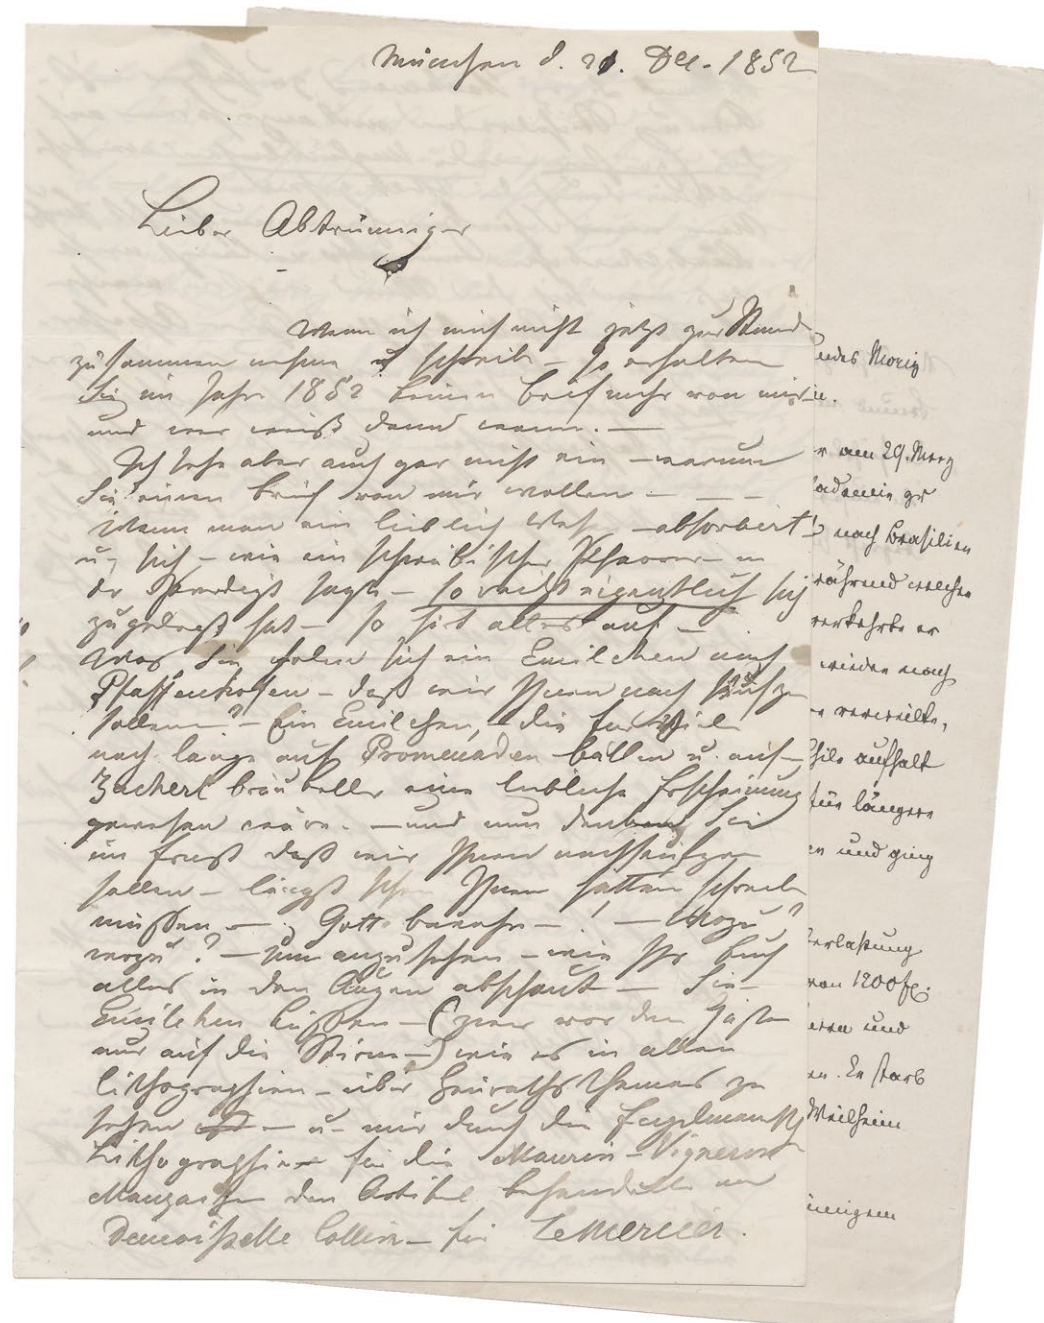 München d. 21. Dec. 1852
Lieber Abtrünniger
Wenn ich mich nicht jetzt zur Stund
zusammen nehme u schreib – so erhalten
Sie im Jahr 1852 keinen Brief mehr von mir
und wer weiß dann wann. —
Ich sehe aber auch gar nicht ein – warum
Sie einen Brief von mir wollen — — —
Wenn man ein lieblich Wesen absorbirt
u. sich – wie ein schwäbischer Pfarrer in
der Predigt sagte – so recht eigentlich sich
zugelegt hat – so hört alles auf –
Was Sie holen sich ein Emilchen nach
Pfaffenhofen – daß wir Ihnen nach seufzen
sollen? – Ein Emilchen, die für Viele
noch lange auf Promenaden bällen u. auf
Zacherl bräukeller eine liebliche Erscheinung
gewesen wäre. – und nun denken Sie
im Ernst daß wir Ihnen nachseufzen
sollen – längst schon Ihnen hätten schreiben
müßen – Gott bewahre – ! – wozu?
wozu? – Um anzusehen – wie Ihr Euch
alles in den Augen abschaut – Sie
Emilchen küßen – (zwar vor den Gästen
nur auf die Stirne –) wie es in allen
lithographien – über Heuraths themas zu
sehen – u. mir durch die
Lithographien für die Maurin – Vigneron
den Artikel behandelte und
Demoiselle Collin – für Lemercier.
Moriz
am 29. März
nach Brasilien
während welcher
verkehrte er
wieder nach
verweilte,
aufhalt
für längere
und ging
von 1200 fl.
und
Er starb
Weilheim
einigem